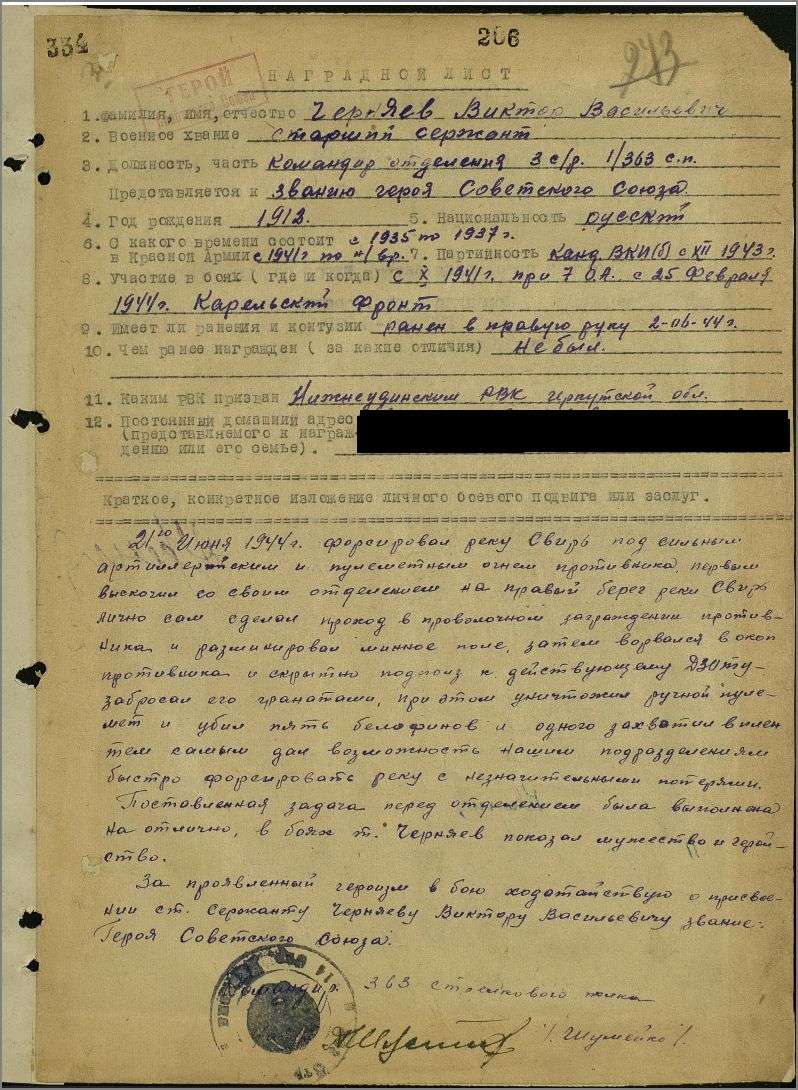 334
206
243
ГЕРОЙ
НАГРАДНОЙ ЛИСТ
1. Фамилия, имя, отчество Черняев Виктор Васильевич
2. Военное звание старший сержант
3. Должность, часть командир отделения 3 с/р. 1/363 с.п.
Представляется к званию героя Советского Союза
4. Год рождения 1912. 5. Национальность русский
6. С какого времени состоит с 1935 по 1937 г.
в Красной Армии с 1941 г. по н/вр. 7. Партийность канд. ВКП(б) с XII 1943 г.
8. Участие в боях ( где и когда) с X 1941 г. при 7 О.А. с 25 Февраля
1944 г. Карельский Фронт
9. Имеет ли ранения и контузии ранен в правую руку 2-
10. Чем ранее награжден ( за какие отличия) не был.
11. Каким РВК призван Нижнеудинским РВК Иркутской обл.
12. Постоянный домашний адрес
(представляемого к награж-
дению или его семье).
Краткое, конкретное изложение личного боевого подвига или заслуг.
21го Июня 1944 г. форсировал реку Свирь под сильным
артиллерийским и пулеметным огнем противника, первым
выскочил со своим отделением на правый берег реки Свирь
лично сам сделал проход в проволочном заграждении против-
ника и разминировал минное поле, затем ворвался в окоп
противника и скрытно подполз к действующему ДЗОТу-
забросал его гранатами, при этом уничтожил ручной пуле-
мет и убил пять белофинов и одного захватил в плен
тем самым дал возможность нашим подразделениям
быстро форсировать реку с незначительными потерями.
Поставленная задача перед отделением была выполнена
на отлично, в боях т. Черняев показал мужество и герой-
ство.
За проявленный героизм в бою ходатайствую о присвое-
нии ст. Сержанту Черняеву Виктору Васильевичу звание:
Героя Советского Союза.
Командир 363 стрелкового полка
/Шумейко/